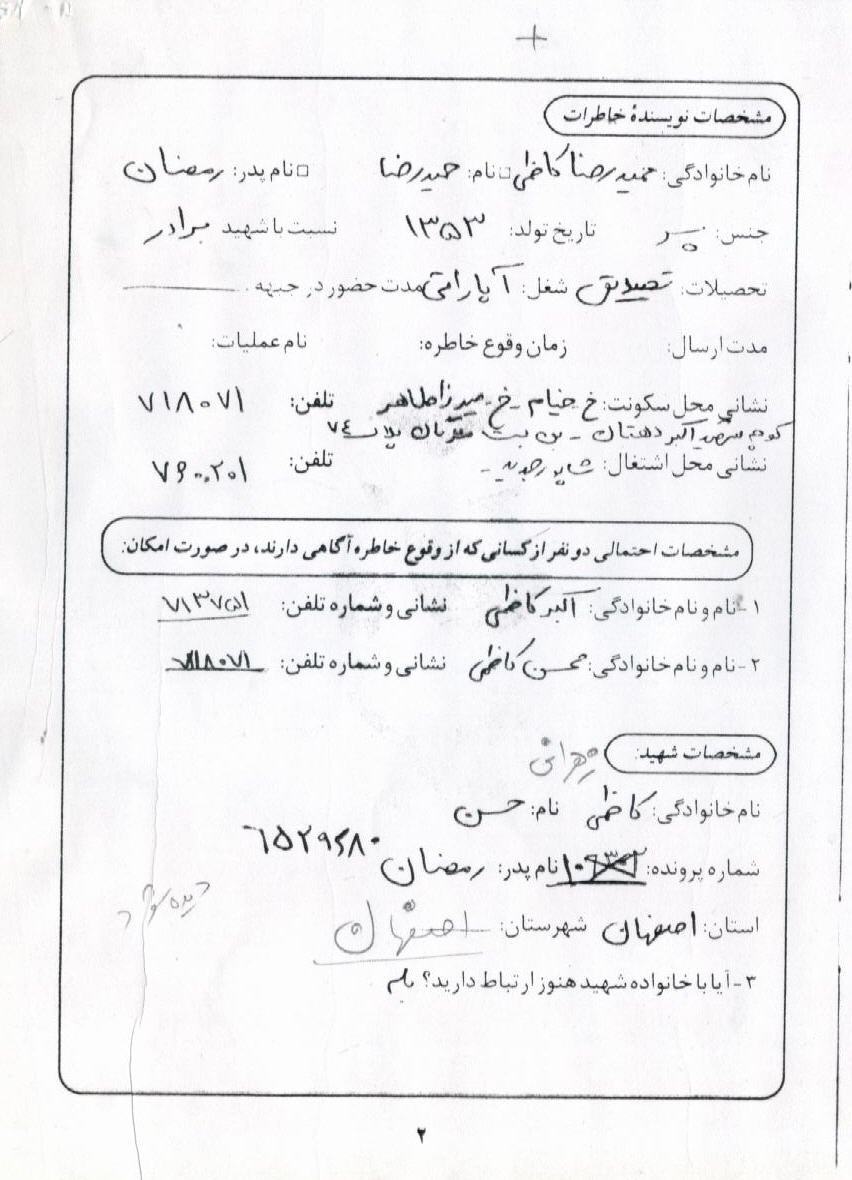 مشخصات نویسندهٔ خاطرات
نام خانوادگی: حمیدرضا کاظمی □ نام: حمیدرضا □ نام پدر: رمضان
جنس: پسر تاریخ تولد: ۱۳۵۳ نسبت با شهید برادر
تحصیلات: تصدیق شغل: آپاراتی مدت حضور در جبهه.
مدت ارسال: زمان وقوع خاطره: نام عملیات:
نشانی محل سکونت: خ خیام - خ میرزا طاهر تلفن: ۷۱۸۰۷۱
کوچه شهید اکبر دهقان - بن بست پلاک ۷۴
نشانی محل اشتغال: شاپور جدید - تلفن: ۷۶۰۰۲۰۱
مشخصات احتمالی دو نفر از کسانی که از وقوع خاطره آگاهی دارند، در صورت امکان:
۱- نام و نام خانوادگی: اکبر کاظمی نشانی و شماره تلفن: ۷۱۳۷۵۱
۲- نام و نام خانوادگی: محسن کاظمی نشانی و شماره تلفن: ۷۱۸۰۷۱
مشخصات شهید: تهرانی
نام خانوادگی: کاظمی نام: حسن
۶۵۲۹۴۸۰
شماره پرونده: نام پدر: رمضان
استان: اصفهان شهرستان: اصفهان
دیده شد
۳- آیا با خانواده شهید هنوز ارتباط دارید؟ بله
۲